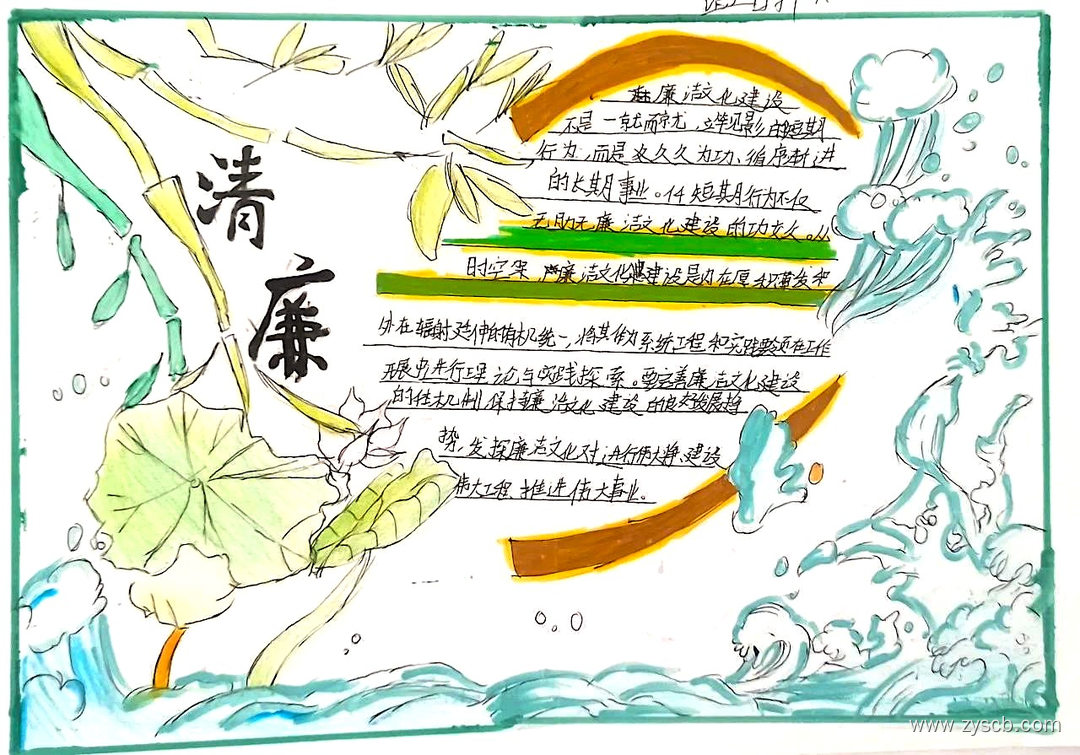 清廉
廉洁文化建设
不是一就而就，立竿见影的短期
行为，而是久久为功、循序渐进
的长期事业。短期行为不仅
无助无廉洁文化建设的功
时空 廉洁文化建设是内在厚积薄发和
外在辐射延伸的有机统一，将其作为系统工程和实践 在工作
开展中进行理论与实践探索。要完善廉洁文化建设
的 机制 保持廉洁文化建设的良好发展趋
势，发探廉洁文化对进行伟大 建设
伟大工程、推进伟大事业。
www.zyscb.com